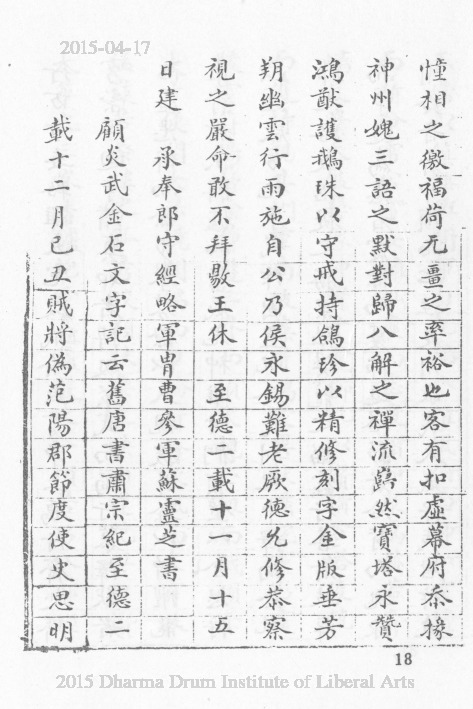 2015-04-17
憧相之徼福荷无疆之率裕也客有扣虛幕府忝掾
神州媿三語之默對歸八解之禪流巋然寶塔永贊
鴻猷護鵝珠以守戒持鴿珍以精修刻字金版垂芳
朔幽雲行雨施自公乃侯永錫難老厥德允修恭察
視之嚴命敢不拜敭王休 至德二載十一月十五
日建 承奉郎守經略軍胄曹參軍蘇靈芝書
顧炎武金石文字記云舊唐書肅宗紀至德二
載十二月己丑賊將偽范陽郡節度使史思明
18
2015 Dharma Drum Institute of Liberal Arts